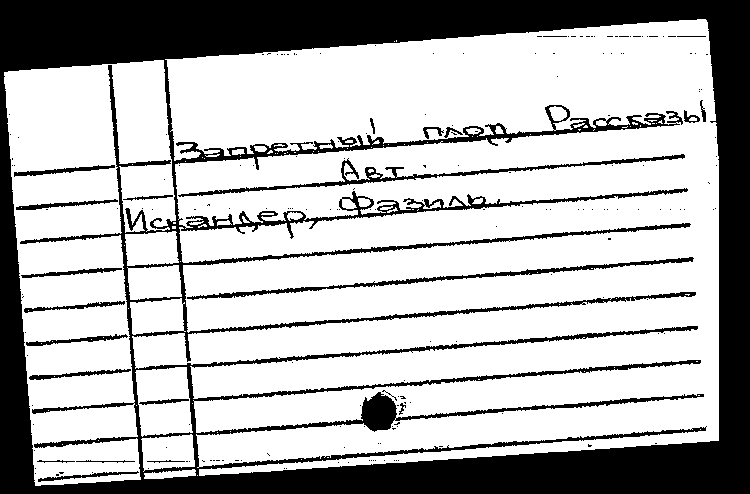 Запретный плод. Рассказы.
Авт.:
Искандер, Фазиль.